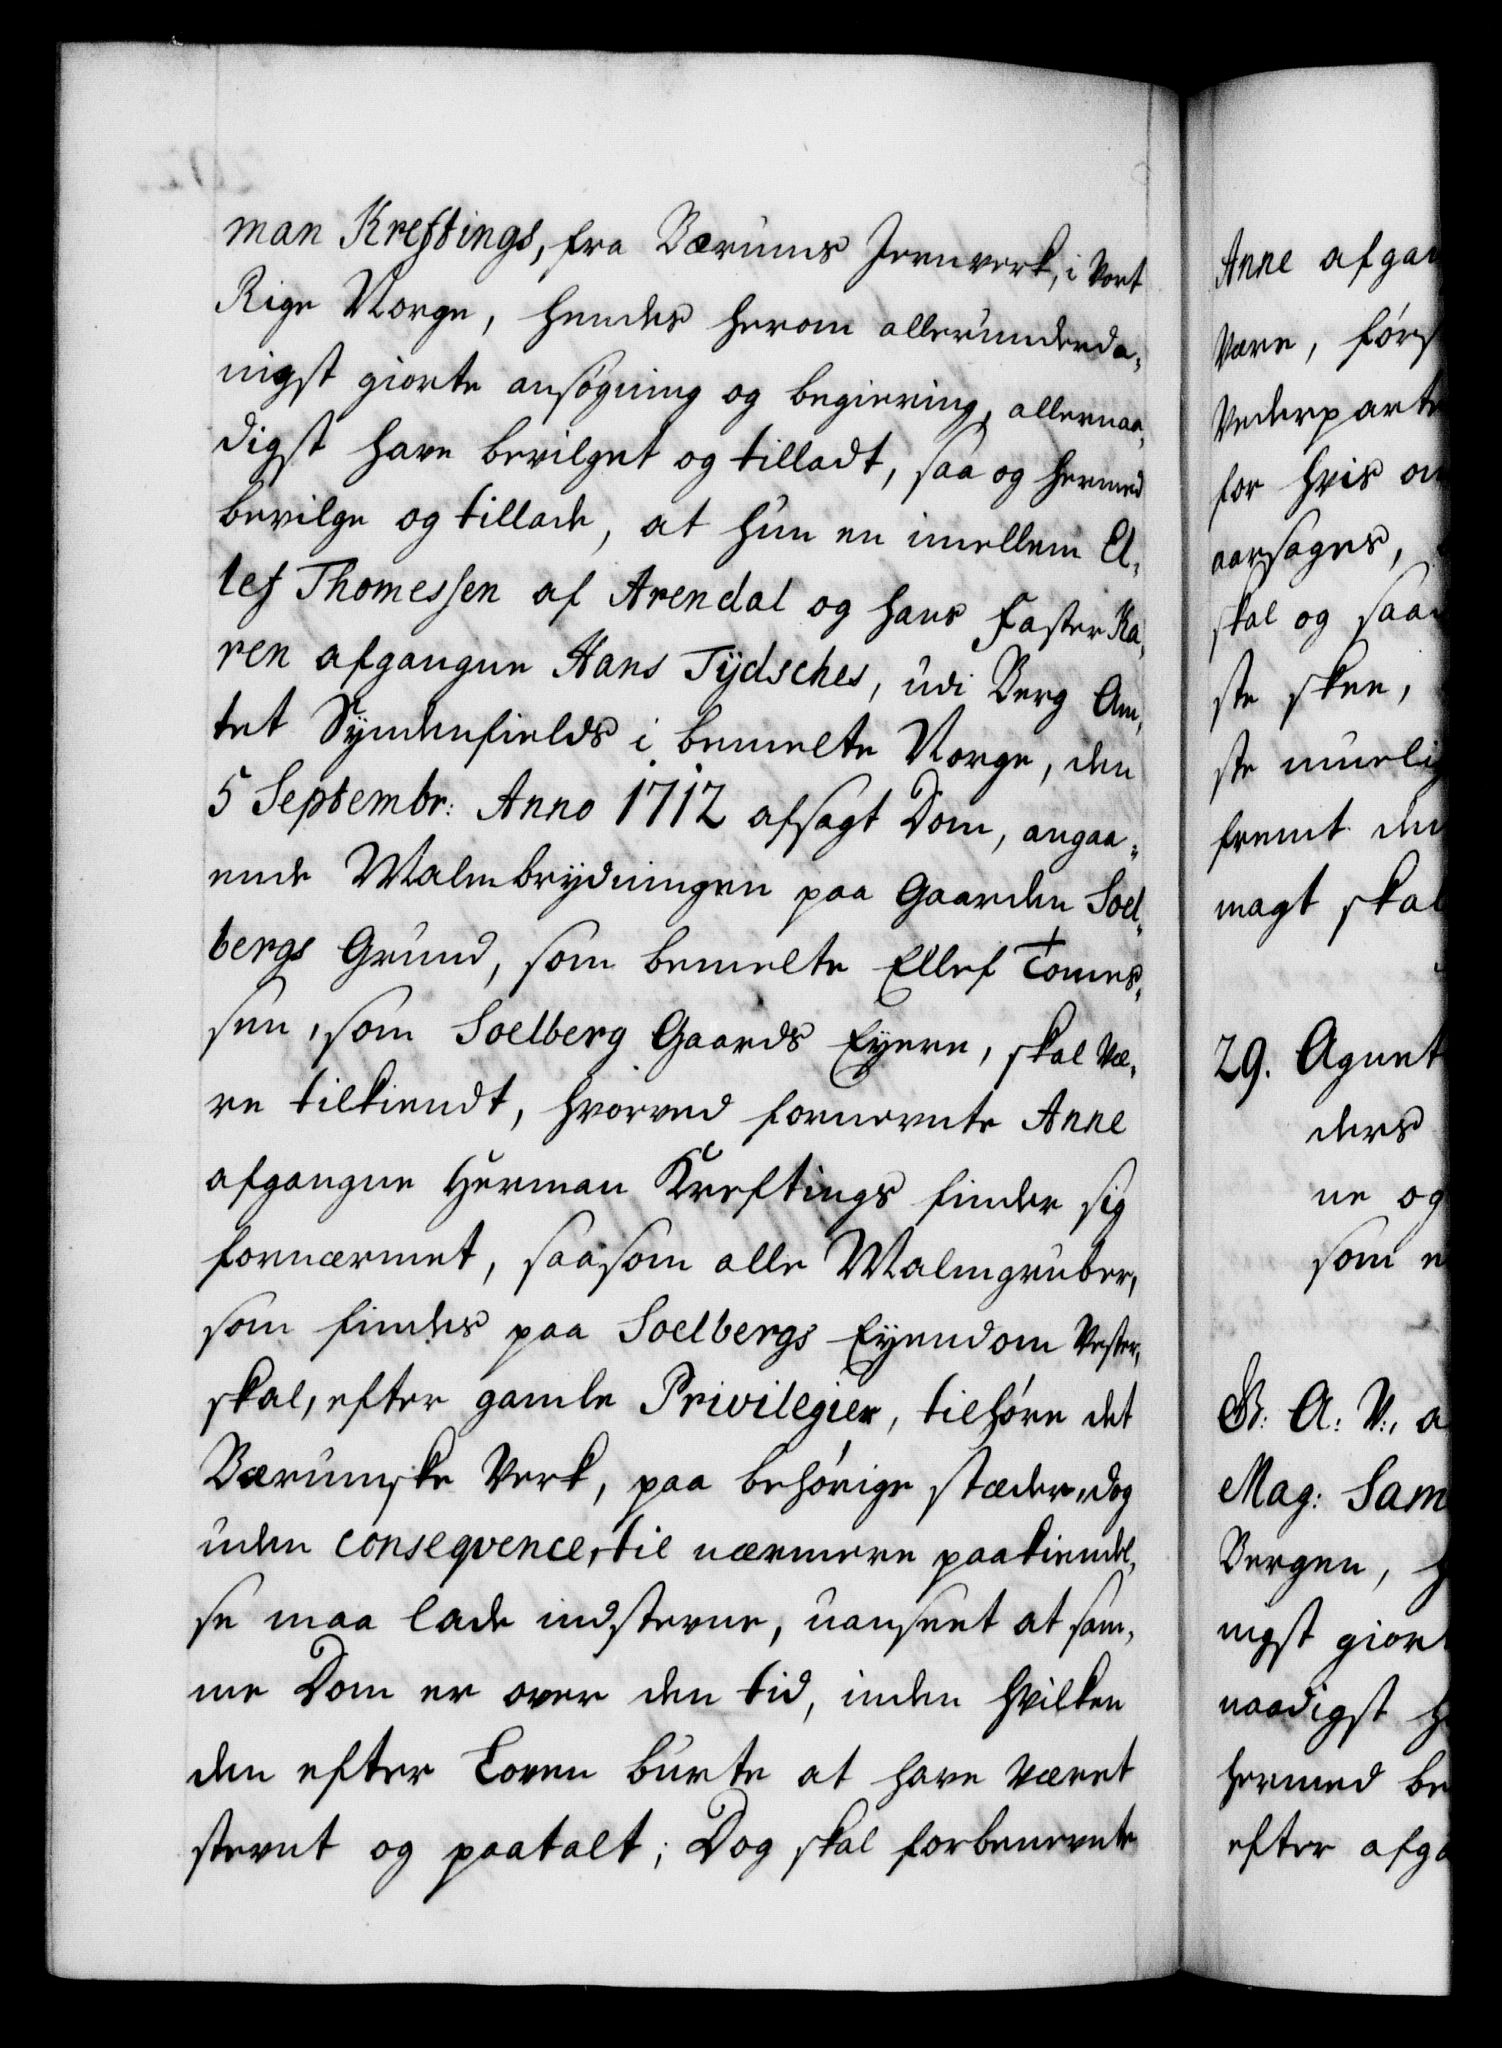 man Kreftings, fra Bærums Jernverk, i Vort
Rige Norge, hendes herom allerunderda-
nigst giorte ansøgning og begiering, allernaa-
digst have bevilget og tilladt, saa og hermed
bevilge og tillade, at hun en imellem El-
lef Thomessen af Arendal og hans Faster Ka-
ren afgangne Hans Tÿdsches, udi Berg Am-
tet Syndenfields i bemelte Norge, den
5 Septembr: Anno 1712 afsagt Dom, angaa-
ende Malmbrydningen paa Gaarden Soel-
bergs Grund, som bemelte Ellef Tomes-
sen, som Soelberg Gaards Eyere, skal væ-
re tilkiendt, hvorved fornevnte Anne
afgangne Herman Kreftings finder sig
fornærmet, saasom alle Malmgruber,
som findes paa Soelbergs Eyendom Vester,
skal, efter gamle Privilegier, tilhøre det
Bærumske Verk, paa behørige stæder, dog
uden conseqvence, til nærmere paakiendel-
se maa lade indstevne, uanseet at sam-
me Dom er over den tid, inden hvilken
den efter Loven burte at have været
stevnt og paatalt; Dog skal forbenevnte
Anne afgan
være, førs
Vederparte
for hvis
aarsages,
skal og saa
ste skee,
ste muelig
fremt den
magt skal
29. Agnet
ders
ne og
som
G: A: V:, a
Mag: Sam
Bergen, h
nigst gior
naadigst h
hermed be
efter afga